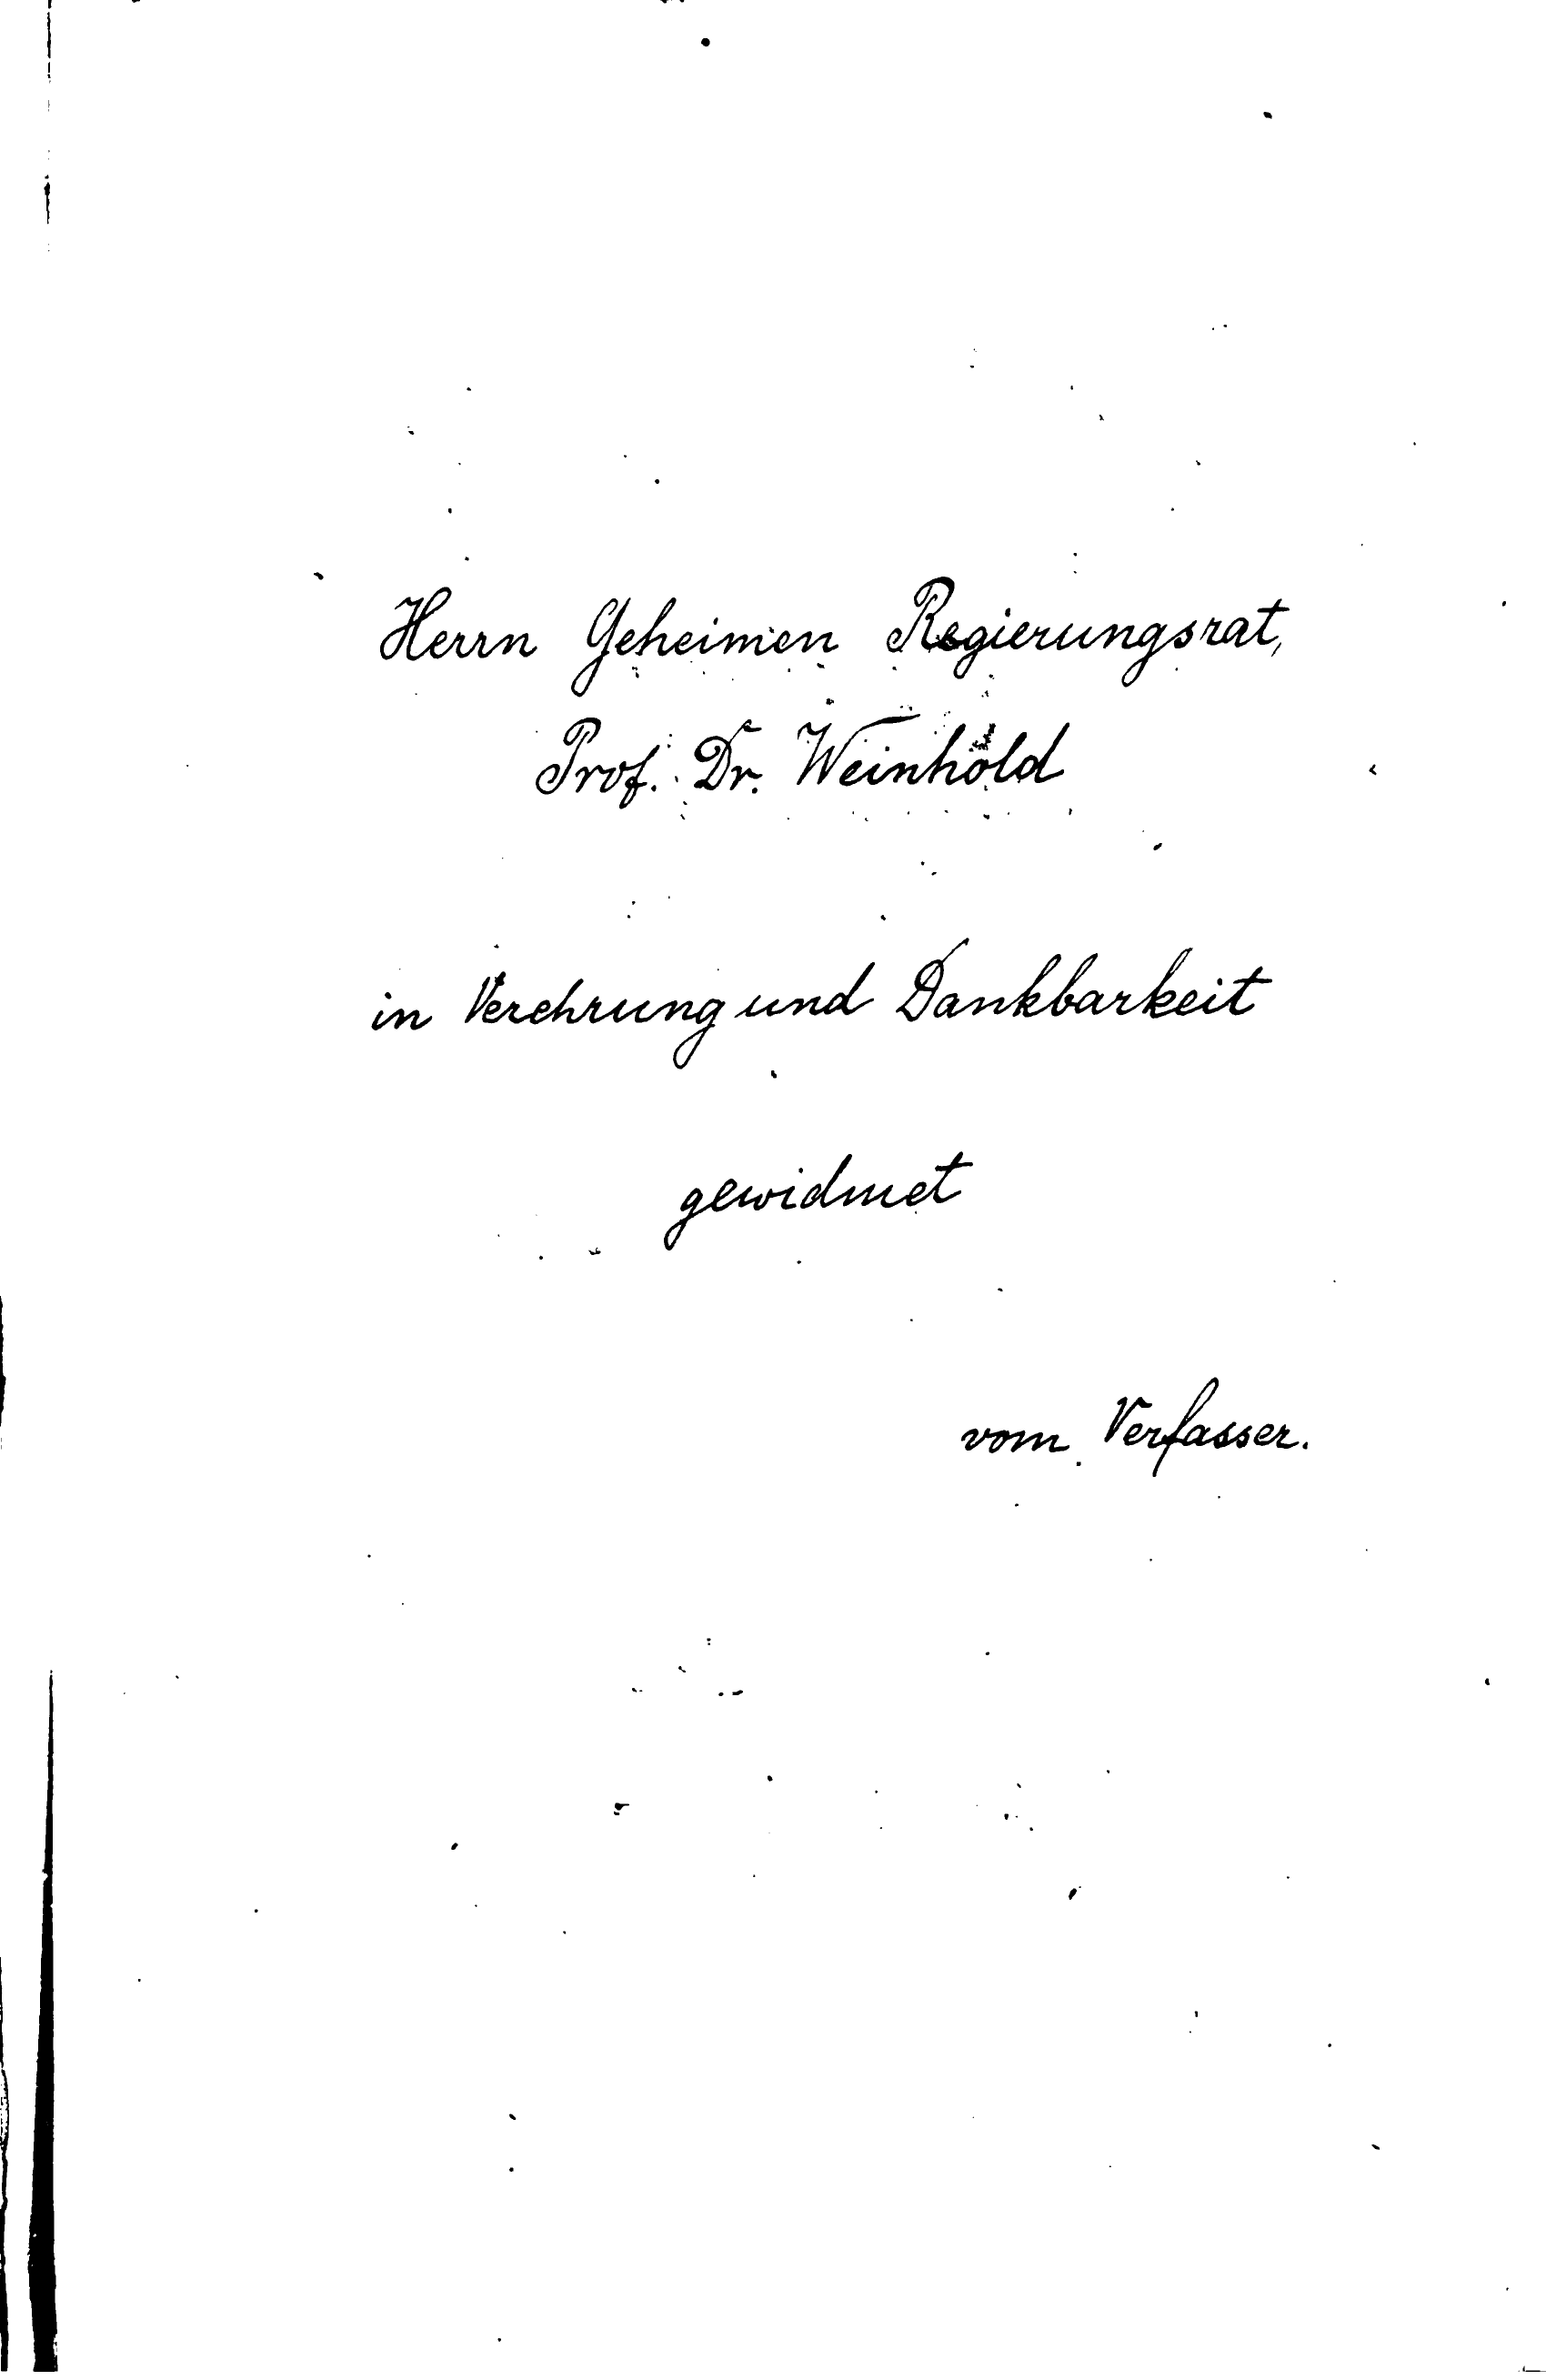 Herrn Geheimen Regierungsrat,
Prof. Dr. Weinhold
in Verehrung und Dankbarkeit
gewidmet
vom Verfasser.